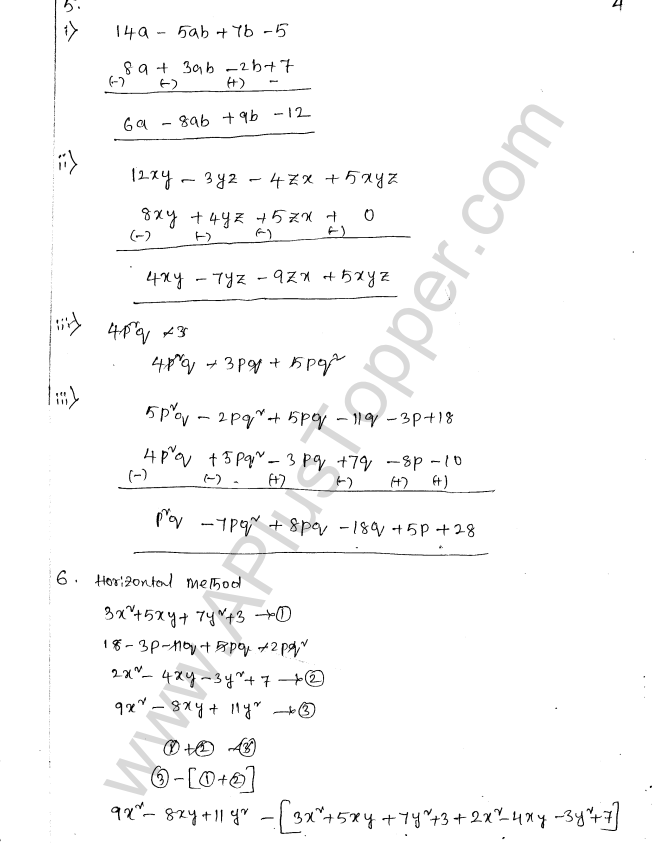 5.
4
i) 14a - 5ab + 7b - 5
8a + 3ab - 2b + 7
(-) (-) (+) -
6a - 8ab + 9b - 12
ii) 12xy - 3yz - 4zx + 5xyz
8xy + 4yz + 5zx + 0
(-) (-) (-) (-)
4xy - 7yz - 9zx + 5xyz
iii) 4p²q
4p²q - 3pq + 5pq²
iii) 5p²q - 2pq² + 5pq - 11q - 3p + 18
4p²q + 5pq² - 3pq + 7q - 8p - 10
(-) (-) (+) (-) (+) (+)
p²q - 7pq² + 8pq - 18q + 5p + 28
6. Horizontal method
3x² + 5xy + 7y² + 3 → ①
18 - 3p - 11q + 5pq - 2pq²
2x² - 4xy - 3y² + 7 → ②
9x² - 8xy + 11y² → ③
① + ② - ③
③ - [① + ②]
9x² - 8xy + 11y² - [3x² + 5xy + 7y² + 3 + 2x² - 4xy - 3y² + 7]
www.APlusTopper.com